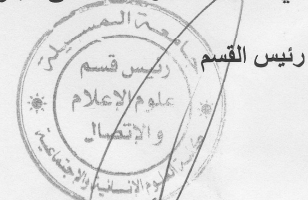 رئيس القسم
جامعة المسيلة
رئيس قسم
علوم الإعلام
والإتصال
العلوم الإنسانية والإجتماعية